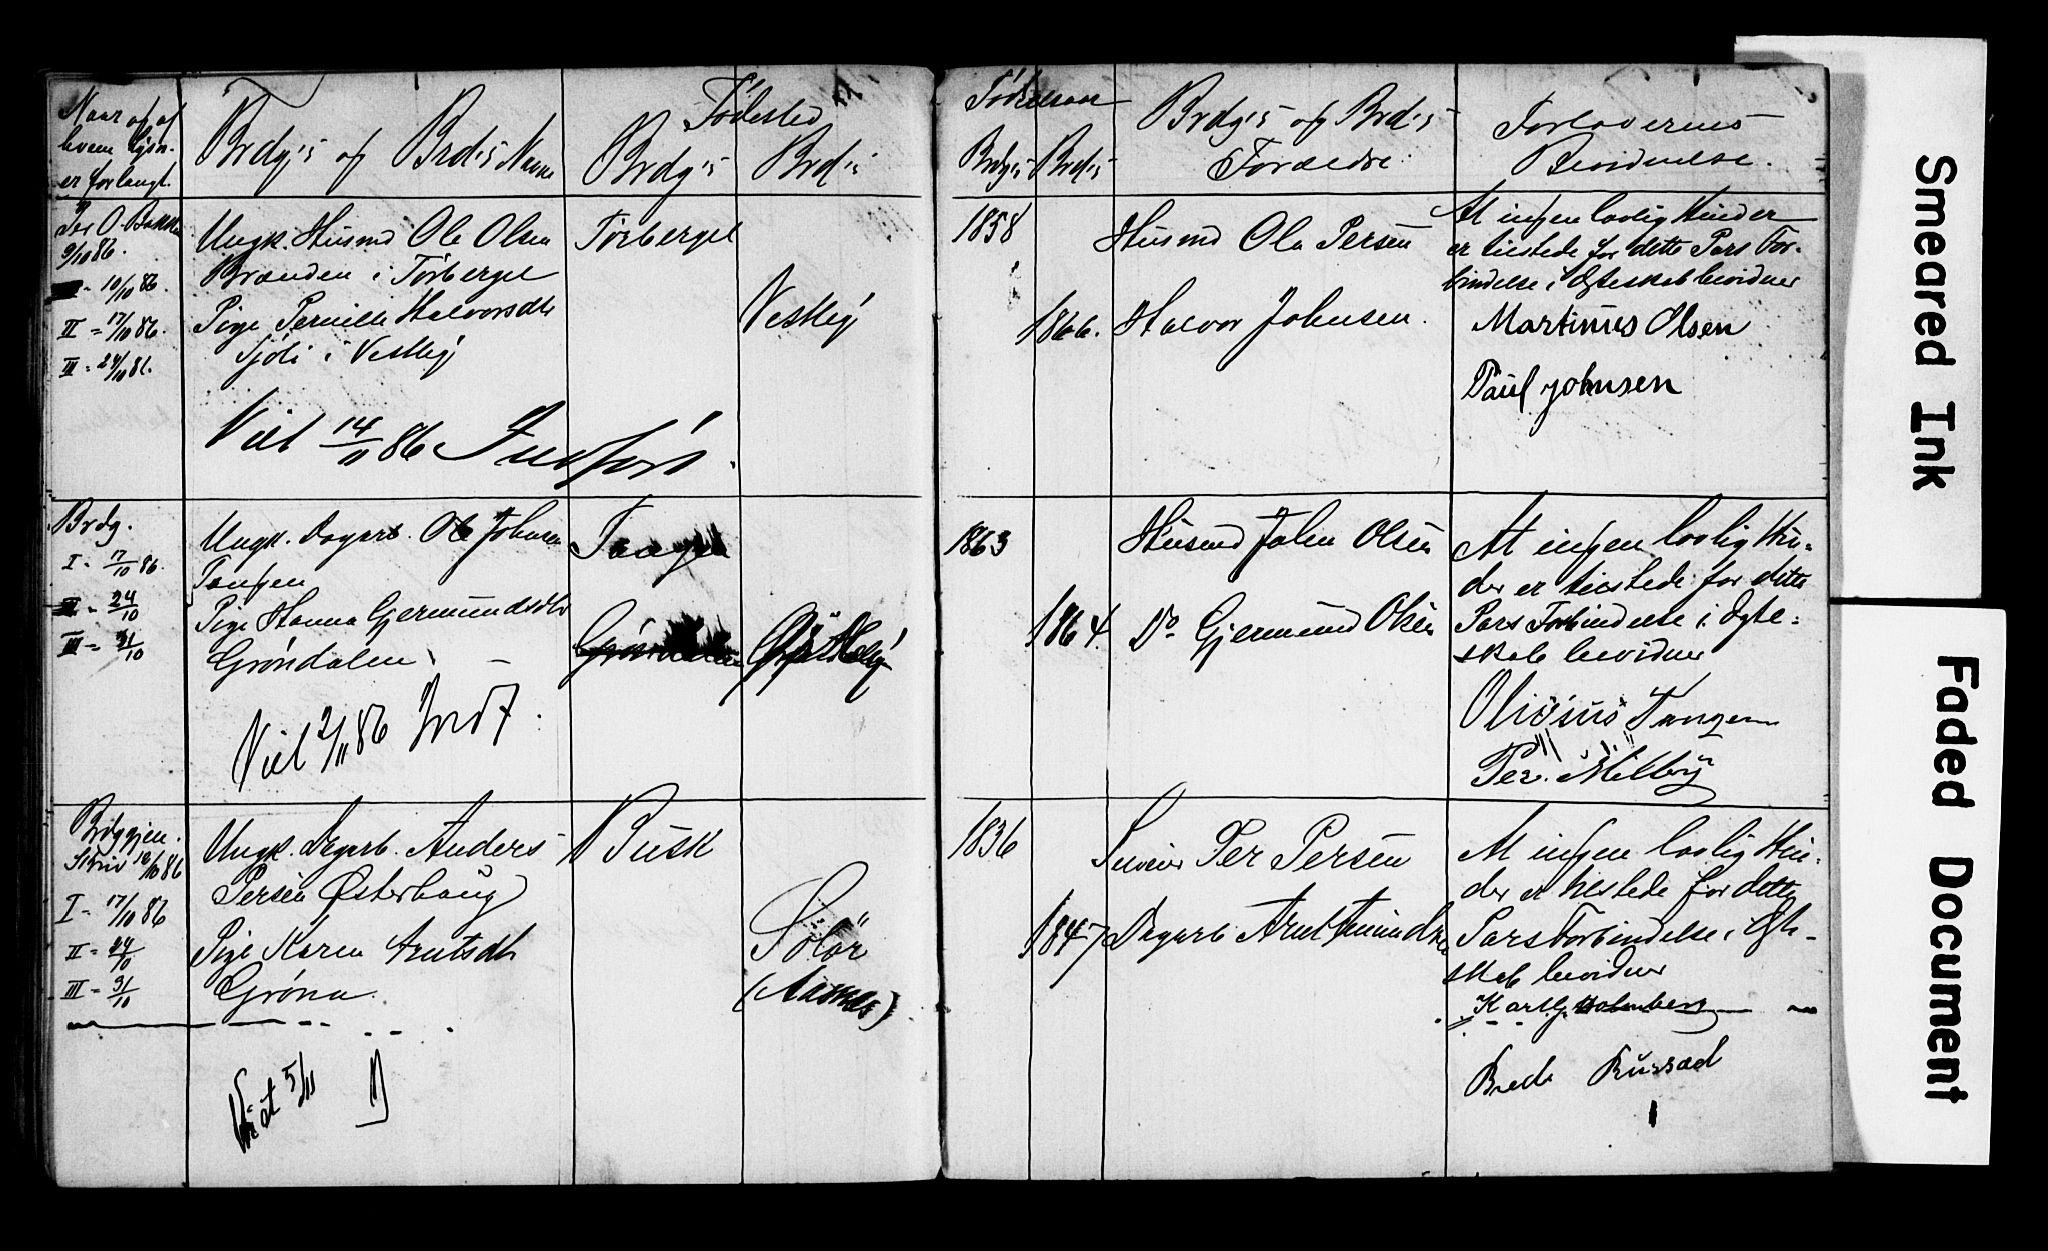 Naar og af
hvem lysn.
er forlangt.
Brdg's og Brd's Navne
Fødested
Brdg's
Brd's
Fødselsaar
Brdg's
Brd's
Brdg's og Brd's
Forældre.
Forlovernes
Bevidnelse.
Per O. Bakken
9/10 86.
I - 10/10 86.
II - 17/10 86.
III - 24/10 86.
Ungk. Husmd Ole Olsen
Brænden i Tørberget
Pige Pernille Halvorsdtr
i Vestby
Viet 14/11 86 Indført.
Tørberget
Vestby
1858
1866.
Husmd Ole Persen
Halvor Johnsen.
At ingen lovlig Hinder
er tilstede for dette Pars For-
bindelse i Ægteskab bevidner
Martinus Olsen
Paul Johnsen
Brdg.
I - 17/10 86.
II - 24/10
III - 31/10
Ungk. Dagarb. Ole Johnsen
Tangen
Pige Hanna Gjermundsdtr
Grøndalen.
Viet 2/11 86 Indf.
Tangen
Grøndalen
1863
1864.
Husmd John Olsen
Do Gjermund Olsen
At ingen lovlig Hin-
der er tilstede for dette
Pars Forbindelse i Ægte-
skab bevidner
Tangen
Per. Melby
Brdggjen.
18/10 86
I - 17/10 86
II - 24/10
III - 31/10
Ungk. Dagarb. Anders
Persen Østerhaug
Pige Karen Arntsdtr
Grøna.
Viet 5/11
Busk
Solør
(Aasnes)
1836
1847
Per Persen
Dagarb Arnt Amundsen
At ingen lovlig Hin-
der er tilstede for dette
Pars Forbindelse i Ægte-
skab bevidner
Karl G. Holmberg
Brede Russad
Smeared Ink
Faded Document